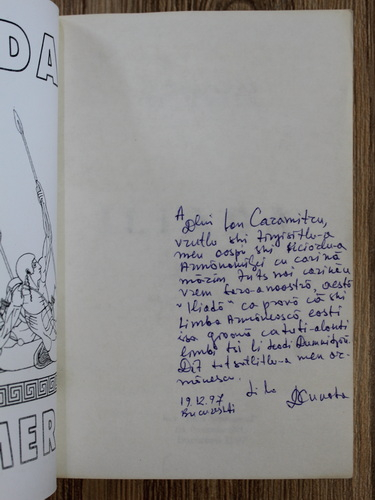 DA
MER
A
Dlui Ion Caramitru,
vrutlu shi tinjisitlu-a
meu oaspi shi ficiorlu-a
Armânamiljei cu carină
mărim, tuts noi
vrem fara-a noastră, aestă
"Iliadă" ca provă că shi
Limba Armânească easti
 groasă ca tuti-alanti
limbi tsi li deadi Dumnidzã.
Dit tot suflitlu-a meu ar-
mânescu.
19.12.97
Bucureşti
di la